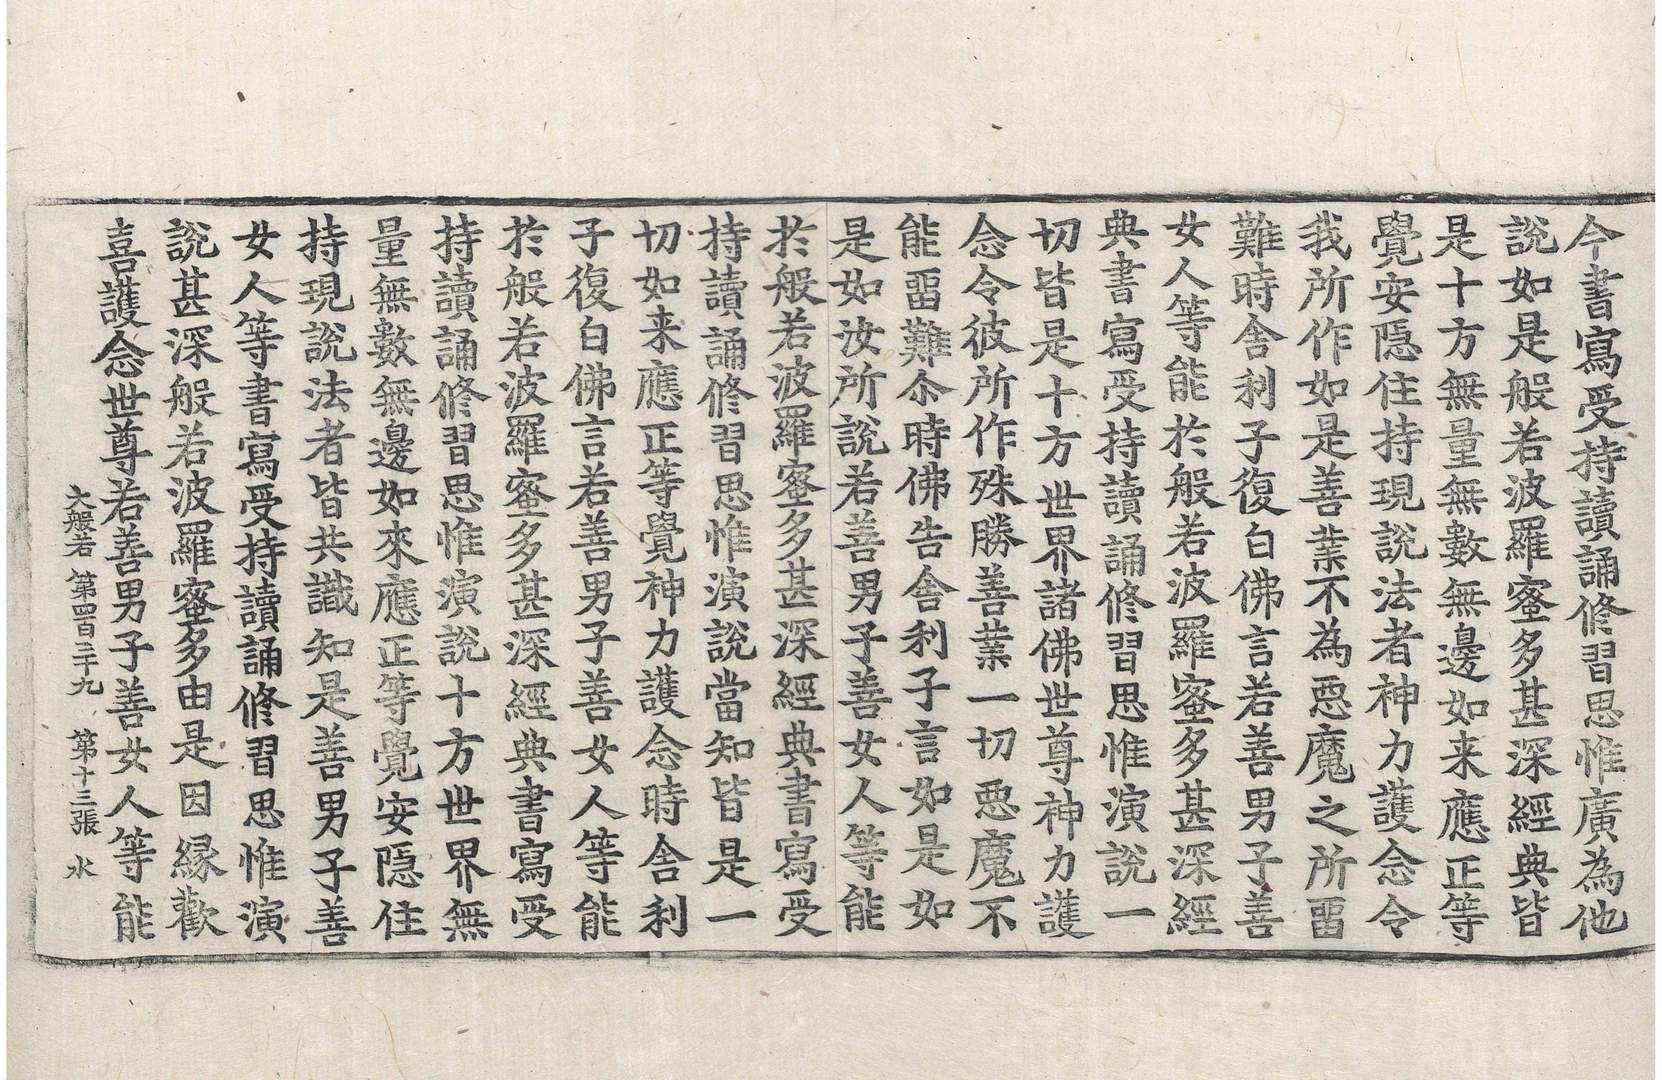 今書寫受持讀誦修習思惟廣為他
說如是般若波羅蜜多甚深經典皆
是十方無量無數無邊如来應正等
覺安隱住持現說法者神力護念令
我所作如是善業不為惡魔之所留
難時舍利子復白佛言若善男子善
女人等能於般若波羅蜜多甚深經
典書寫受持讀誦修習思惟演說一
切皆是十方世界諸佛世尊神力護
念令彼所作殊勝善業一切惡魔不
能留難尒時佛告舍利子言如是如
是如汝所說若善男子善女人等能
於般若波羅蜜多甚深經典書寫受
持讀誦修習思惟演說當知皆是一
切如来應正等覺神力護念時舍利
子復白佛言若善男子善女人等能
於般若波羅蜜多甚深經典書寫受
持讀誦修習思惟演說十方世界無
量無數無邊如來應正等覺安隱住
持現說法者皆共識知是善男子善
女人等書寫受持讀誦修習思惟演
說甚深般若波羅蜜多由是因緣歡
喜護念世尊若善男子善女人等能
大般若 第四百三十九 第十三張 水